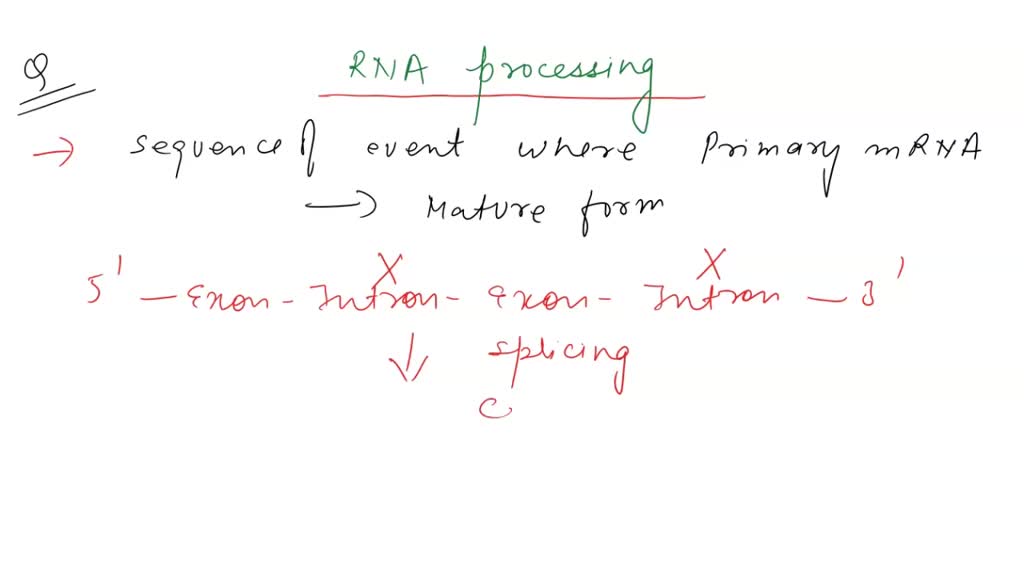 Q RNA processing
→ sequence of event where Primary mRNA
→ Mature form
X X
5' - Exon - Intron - exon - Intron - 3'
↓ splicing
c